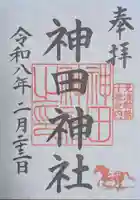 奉拝
神田神社
令和八年二月二十三日